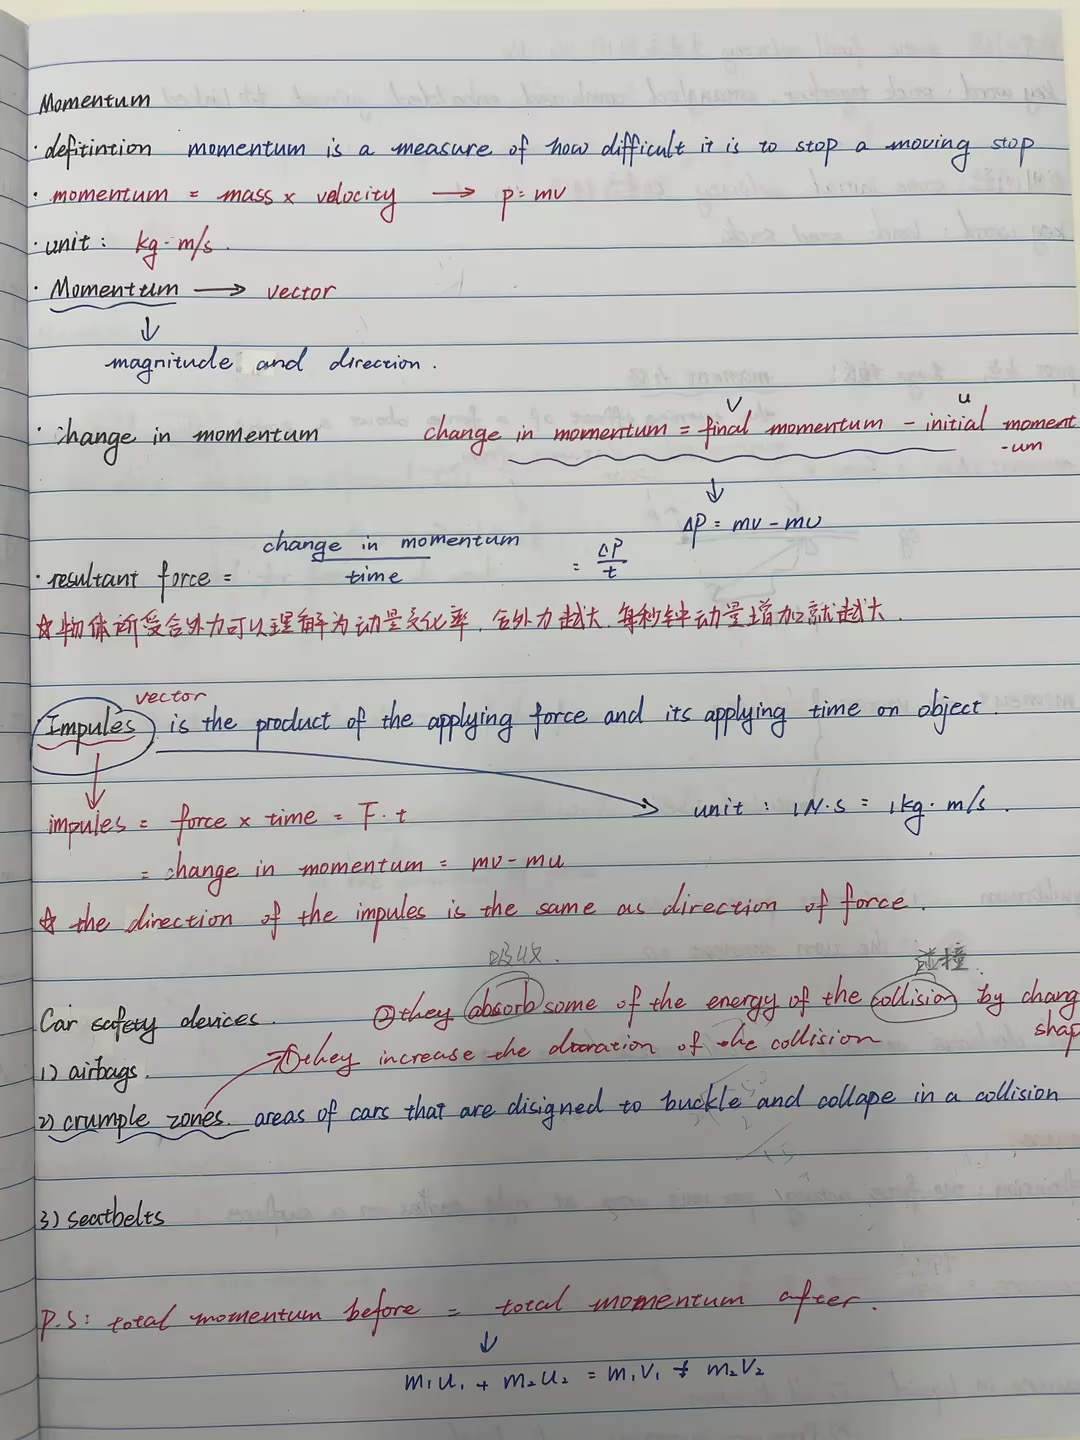 Momentum
· defitintion momentum is a measure of how difficult it is to stop a moving stop
· momentum = mass x velocity → p = mv
· unit : kg · m/s .
· Momentum → vector
↓
magnitude and direction .
V u
· change in momentum change in momentum = final momentum - initial moment
-um
↓
ΔP = mv - mu
change in momentum
· resultant force = = ΔP/t
time
☆物体所受合外力可以理解为动量变化率. 合外力越大. 每秒钟动量增加就越大.
vector
Impules is the product of the applying force and its applying time on object .
↓
impules = force x time = F · t → unit : 1N·s = 1kg · m/s .
= change in momentum = mv - mu
☆ the direction of the impules is the same as direction of force .
吸收. 碰撞.
Car safety devices. ②they absorb some of the energy of the collision by chang
shap
①they increase the doration of the collision
1) airbags.
2) crumple zones. areas of cars that are disigned to buckle and collape in a collision
3) seatbelts
P.S: total momentum before = total momentum after.
↓
m₁u₁ + m₂u₂ = m₁v₁ + m₂v₂